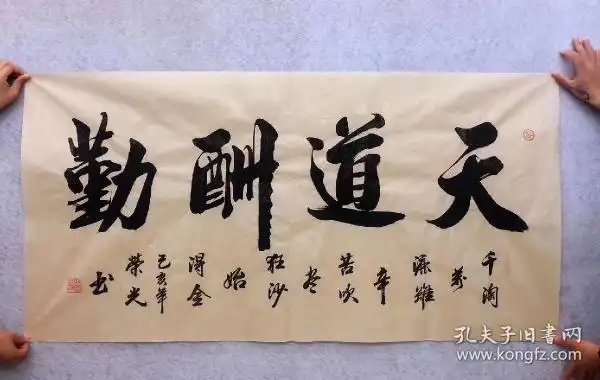 天道酬勤
千淘
萬
漉雖
辛
苦吹
尽
狂沙
始
得金
己亥年
榮光
书
孔夫子旧书网
www.kongfz.com